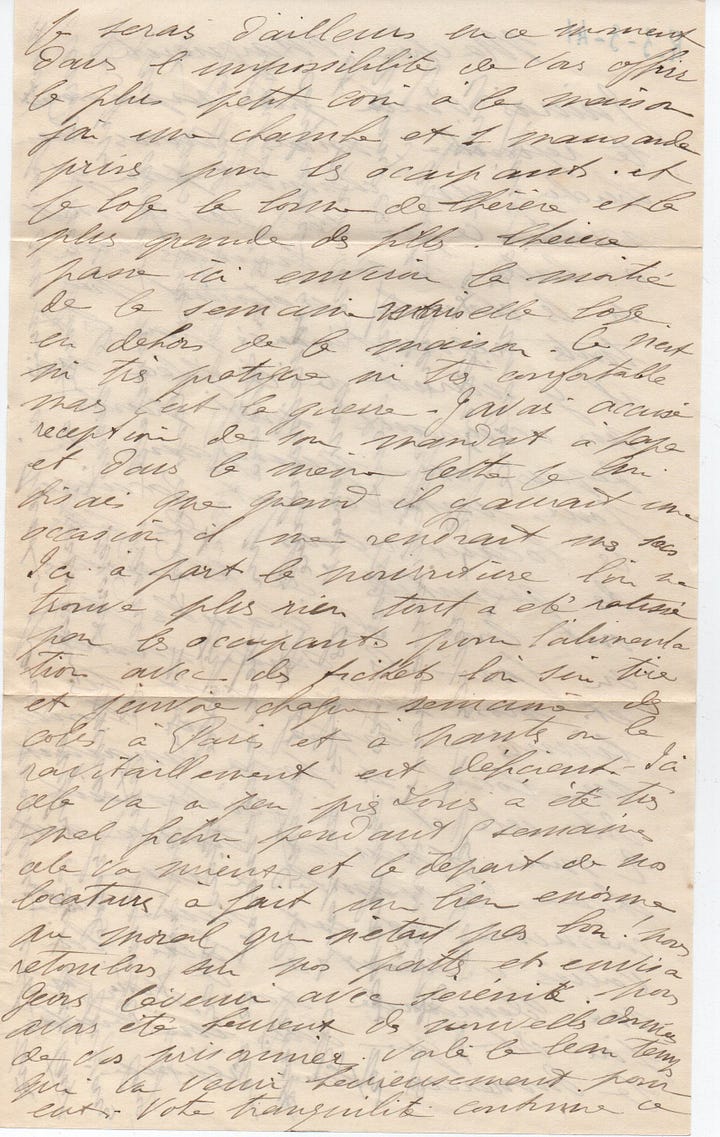 Je serais d'ailleurs en ce moment
dans l'impossibilité de vous offrir
le plus petit coin à la maison
j'ai une chambre et 1 mansarde
prises pour les occupants. et
je loge la bonne de Thérèse et la
plus grande des filles. Thérèse
passe ici environ la moitié
de la semaine mais elle loge
en dehors de la maison. Ce n'est
ni très pratique ni très confortable
mais c'est la guerre - J'avais accusé
réception de son mandat à
et dans la même lettre je lui
disais que quand il y aurait une
occasion il me rendrait mes sacs
Ici à part la nourriture l'on ne
trouve plus rien tout a été
par les occupants pour l'alimenta
tion avec des l'on s'en tire
et j'envoie chaque semaine des
colis à Paris et à Nantes ou le
ravitaillement est déficient - Ici
cela va a peu près Louis a été très
mal fichu pendant semaines
cela va mieux et le départ de nos
locataires à fait un bien énorme
au moral qui n'etait pas bon! nous
retombons sur nos pattes et envisa
geons l'avenir avec sérénité. Nous
avons été heureux de nouvelles données
de vos prisonniers. Voilà le beau temps
qui va venir heureusement pour
eux. Votre tranquilité continue ce